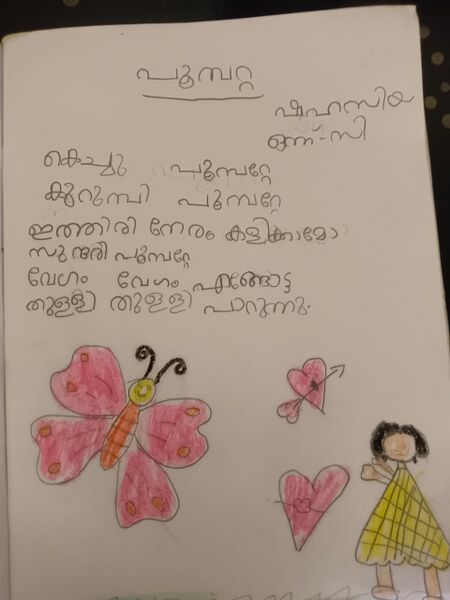 പൂമ്പറ്റ
ഷഹസിയ
ഒന്ന്-സി
കൊച്ചു പൂമ്പറ്റേ
കുറുമ്പി പൂമ്പറ്റേ
ഇത്തിരി നേരം കളിക്കാമോ
സുന്ദരി പൂമ്പറ്റേ
വേഗം വേഗം എങ്ങോട്ട
തുള്ളി തുള്ളി പാറുന്നു.